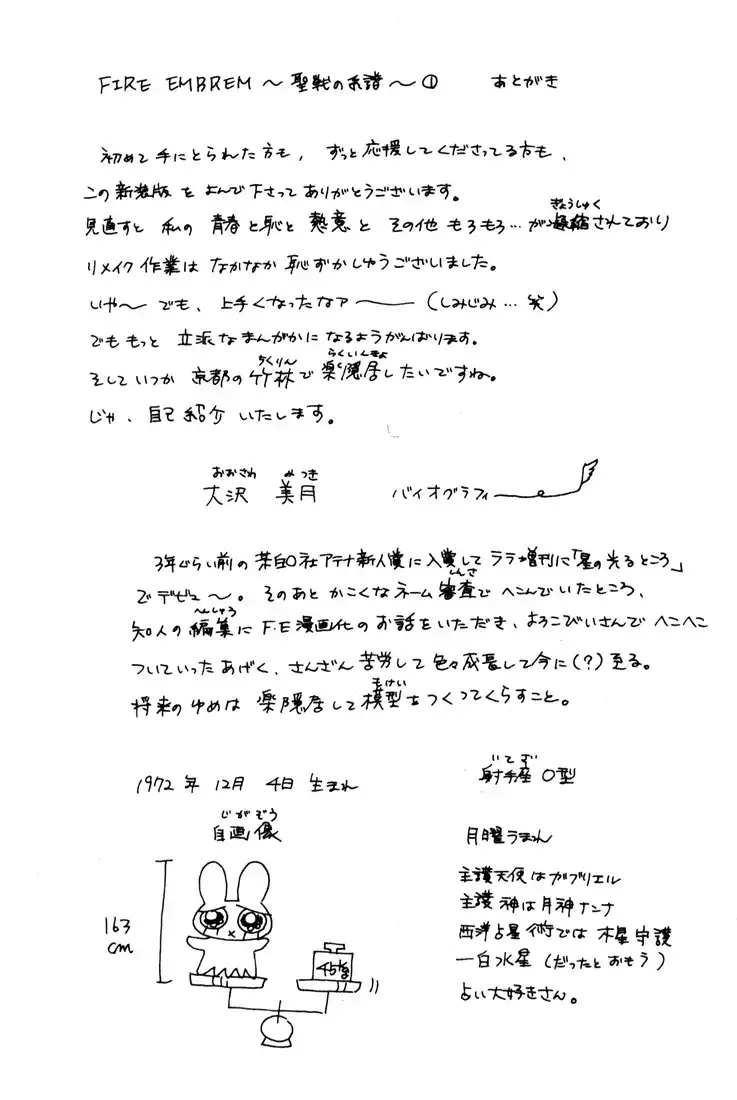 FIRE EMBREM ～聖戦の系譜～① あとがき
初めて手にとられた方も、ずっと応援してくださってる方も、
この新装版をよんで下さってありがとうございます。
ぎょうしゅく
見直すと私の青春と恥と熱意とその他もろもろ…が凝縮されており
リメイク作業はなかなか恥ずかしゅうございました。
いや～でも、上手くなったなァ――(しみじみ…笑)
でももっと立派なまんがかになるようがんばります。
ちくりん らくいんきょ
そしていつか京都の竹林で楽隠居したいですね。
じゃ、自己紹介いたします。
おおさわ みつき
大沢 美月 バイオグラフィ
3年くらい前の某白○社アテナ新人賞に入賞してララ増刊に「星の光るところ」
しんさ
でデビュ～。そのあとかこくなネーム審査でへこんでいたところ、
へんしゅう
知人の編集にF.E漫画化のお話をいただき、よろこびいさんでへこへこ
ついていったあげく、さんざん苦労して色々成長して今に(?)至る。
もけい
将来のゆめは楽隠居して模型をつくってくらすこと。
1972年12月4日生まれ
いてざ
射手座 O型
じがぞう
自画像
月曜うまれ
主護天使はガブリエル
主護神は月神ナンナ
西洋占星術では木星守護
一白水星(だったとおもう)
占い大好きさん。
163
cm